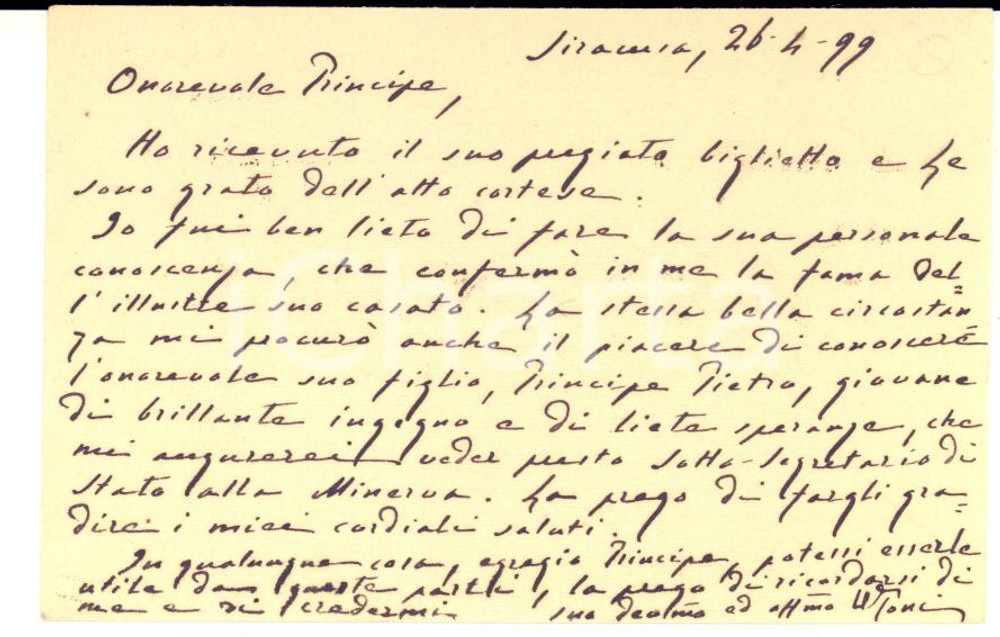 Siracusa, 26-4-99
Onorevole Principe,
Ho ricevuto il suo pregiato biglietto e Le
sono grato dell'atto cortese.
Io fui ben lieto di fare la sua personale
conoscenza, che confermò in me la fama del=
l'illustre suo casato. La stessa bella circostan=
za mi procurò anche il piacere di conoscere
l'onorevole suo figlio, Principe Pietro, giovane
di brillante ingegno e di liete speranze, che
mi augurerei veder presto Sotto-Segretario di
Stato alla Minerva. La prego di fargli gra=
dire i miei cordiali saluti.
In qualunque cosa, egregio Principe, potessi esserle
utile da queste parti, la prego di ricordarsi di
me e di credermi suo devmo ed affmo
iCharta